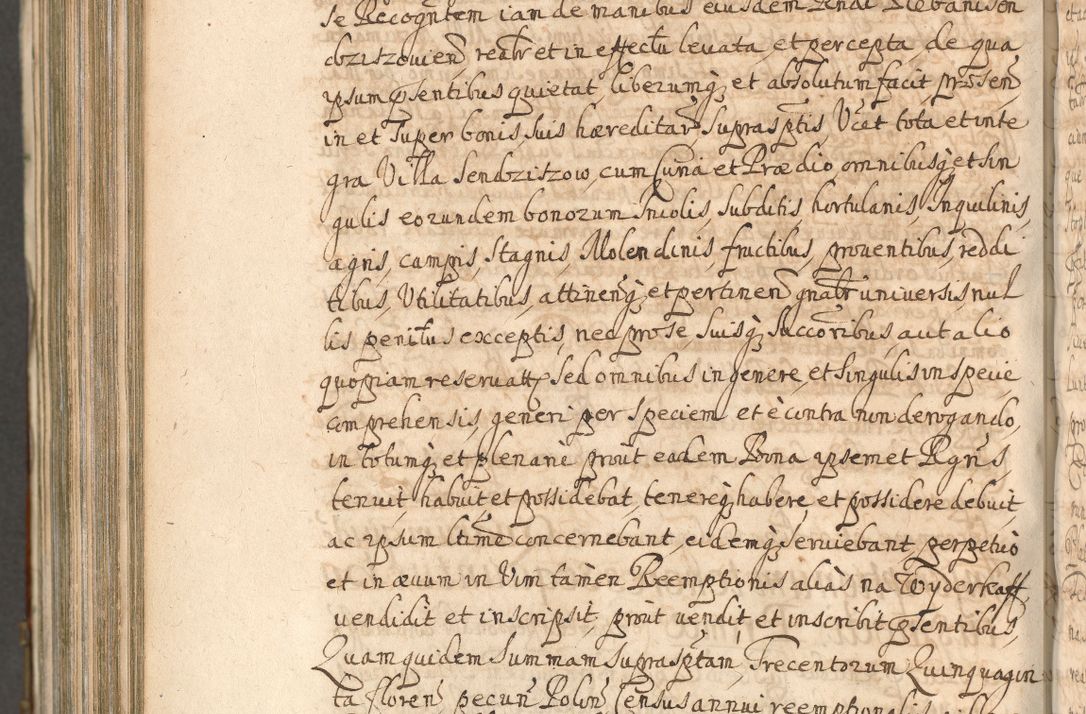 se Recogñtem iam de manibus eiusdem Rñdi Plebani Sen
dziszovien̄ realr̄ et in effectu levata et percepta, de qua
ipsum p̄sentibus quietat, liberumq; et absolutum facit,
in et super bonis suis hæreditar̄ suprasp̄tis Vczt tota et inte
gra Villa Sendziszow, cum Curia et Prædio, omnibusq; et sin
gulis eorundem bonorum Incolis, subditis, hortulanis, Inquilinis,
agris, campis, stagnis, Molendinis, fructibus, proventibus, reddi
tibus, Utilitatibus, attinen̄q; et pertinen̄ gn̄alr̄ universis, nul
lis penitus exceptis, neq pro se, suisq; succōribus, aut alio
quopiam reservatt, Sed omnibus in genere, et singulis in specie
comprehensis, generi per speciem et è contra non derogando,
in totumq; et plenarie prout eadem Bona ipsemet Rgñs,
tenuit, habuit, et possidebat, tenereq; habere, et possidere debuit,
ac ipsum ltimē concernebant, eidemq; serviebant, perpetuo
et in ævum in Vim tamen Reemptionis alias na Wyderkaff
vendidit et inscripsit, prout vendit, et inscribit p̄sentibus,
Quamquidem Summam suprasp̄tam, Trecentorum Quinquagin
ta floren̄ pecun̄ Polon̄ Census annui reemptionalis